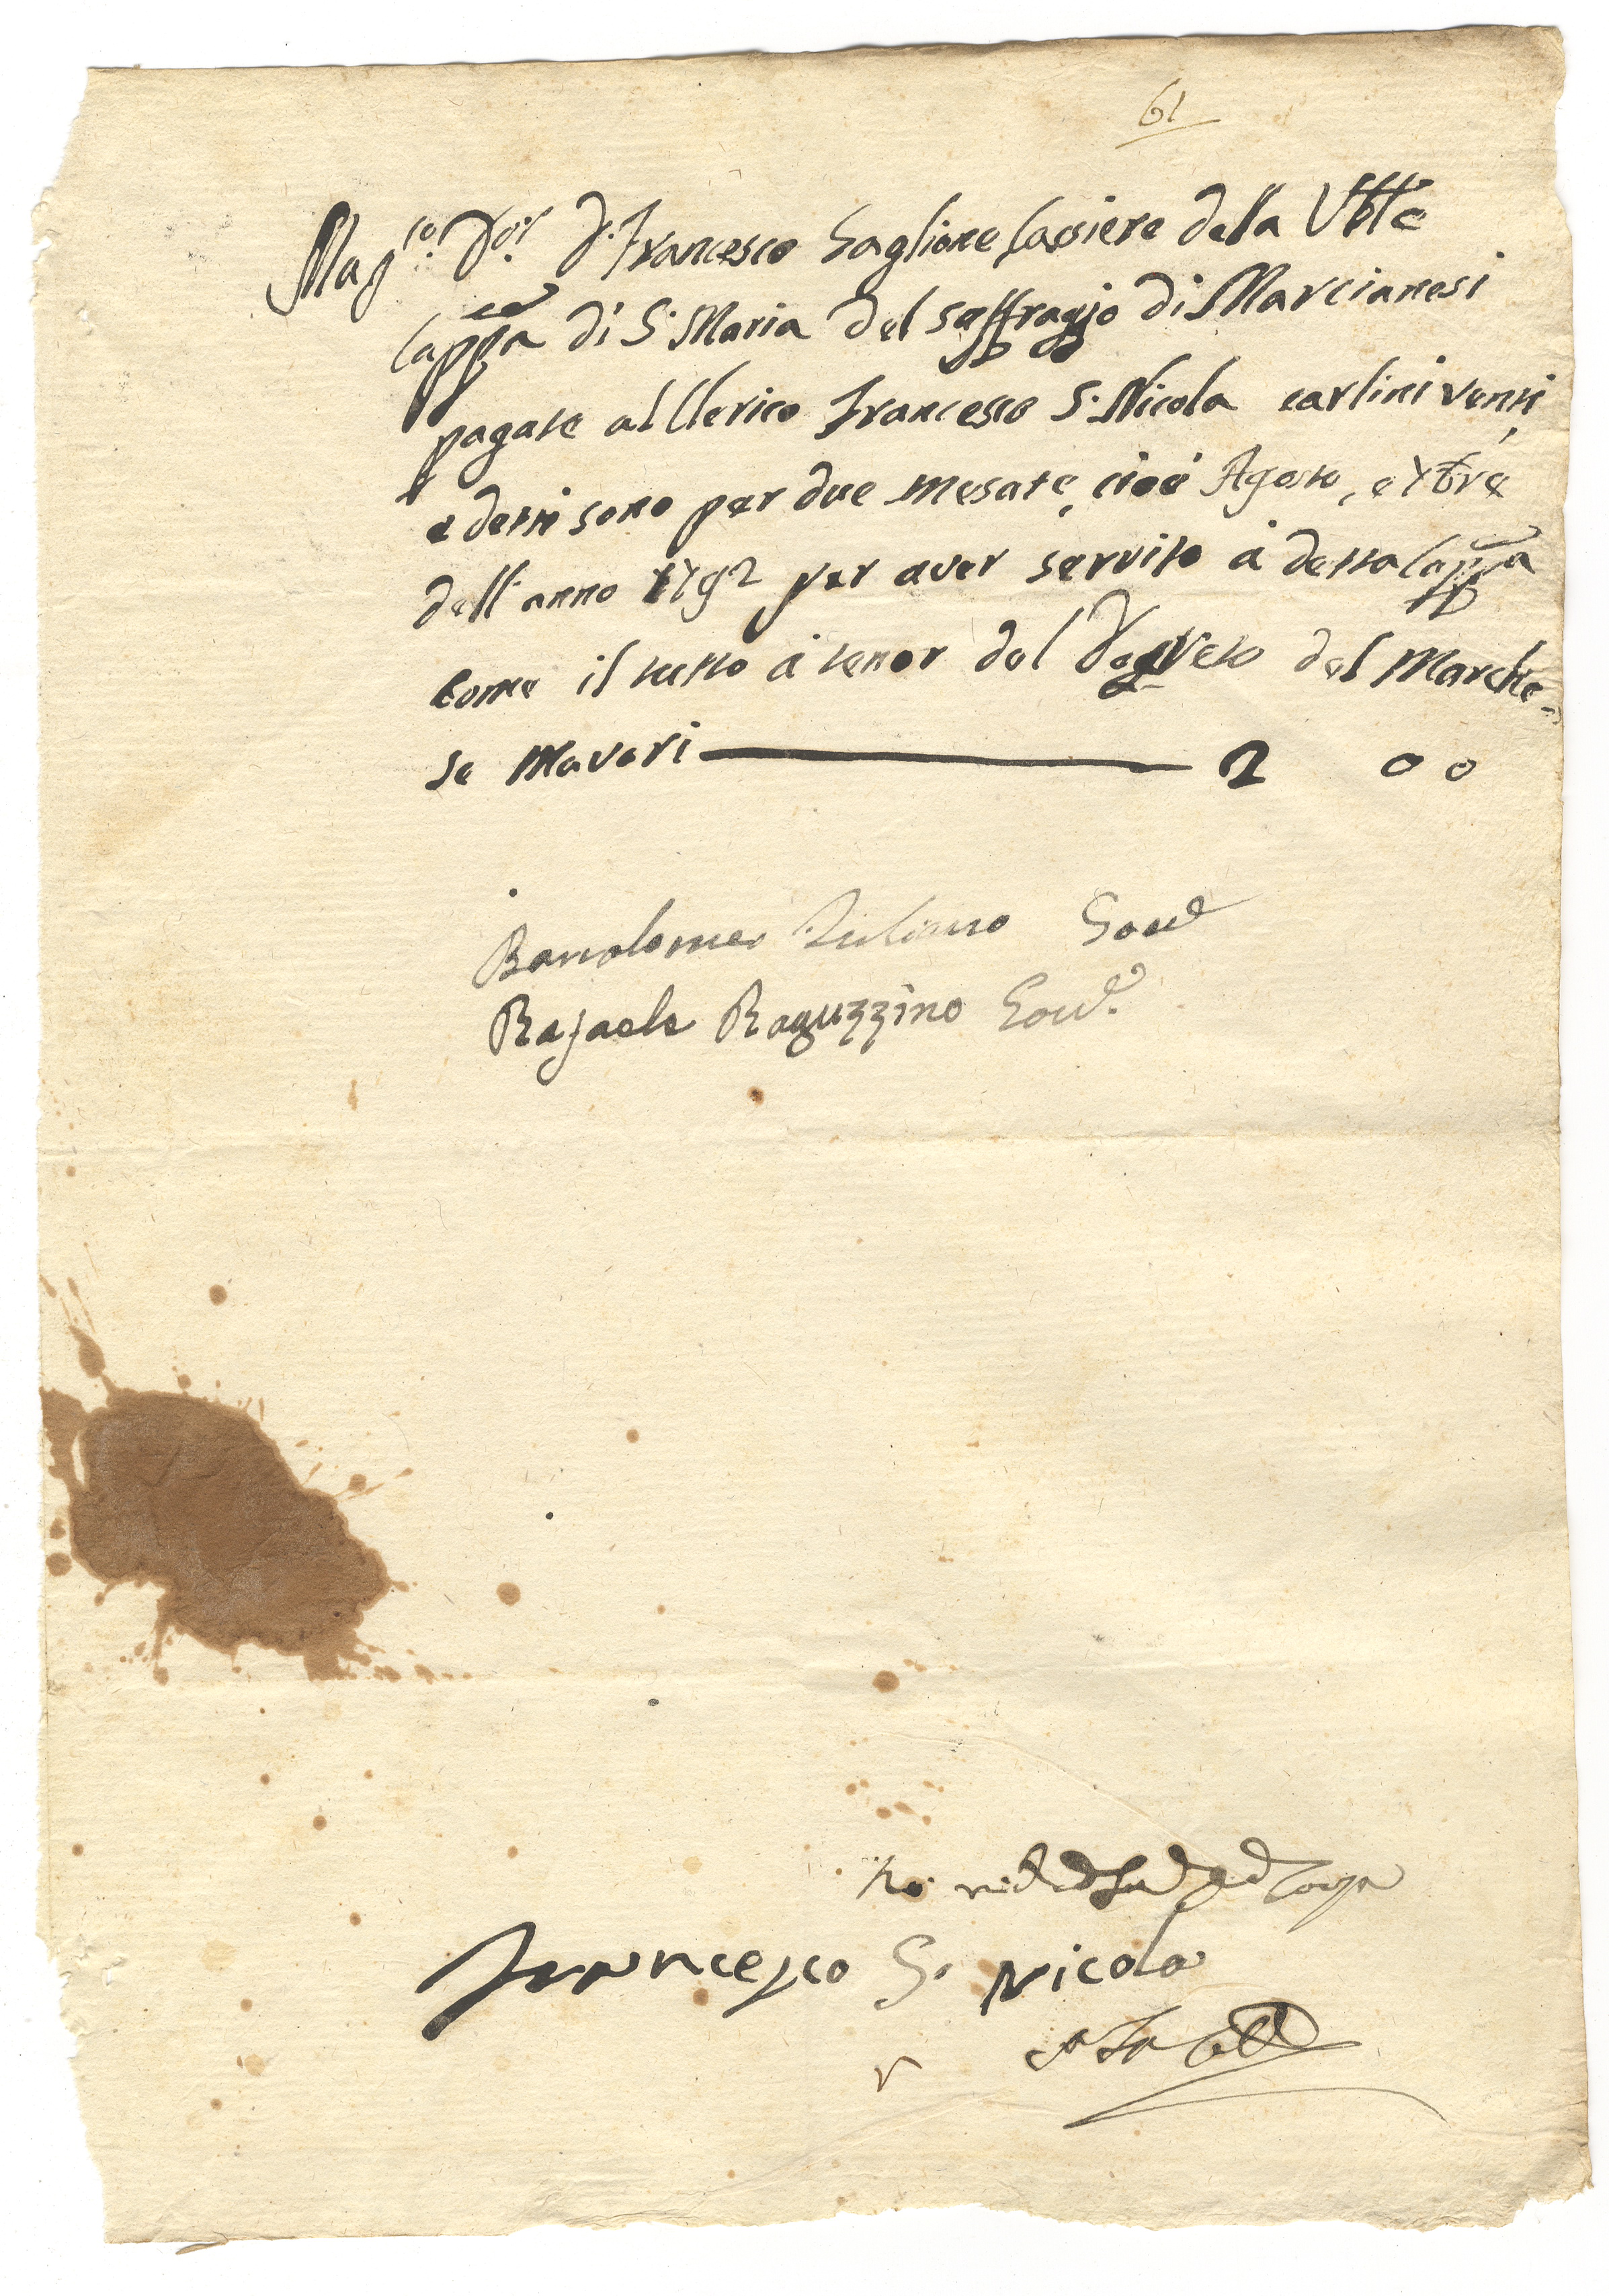 61
Mag.co D.r D. Francesco Gaglione Cassiere della
Cappa di S. Maria del suffragio di Marcianesi
pagate al Clerico Francesco S. Nicola carlini venti,
e detti sono per due mesate, cioè Agosto, e 7bre
dell'anno 1792 per aver servito à detta Cappa
come il tutto à tenor del del Marche-
se Mavari 2 00
Bartolomeo Iuliano Gov.e
Rafaele Raguzzino Gov.e
Francesco S. Nicola